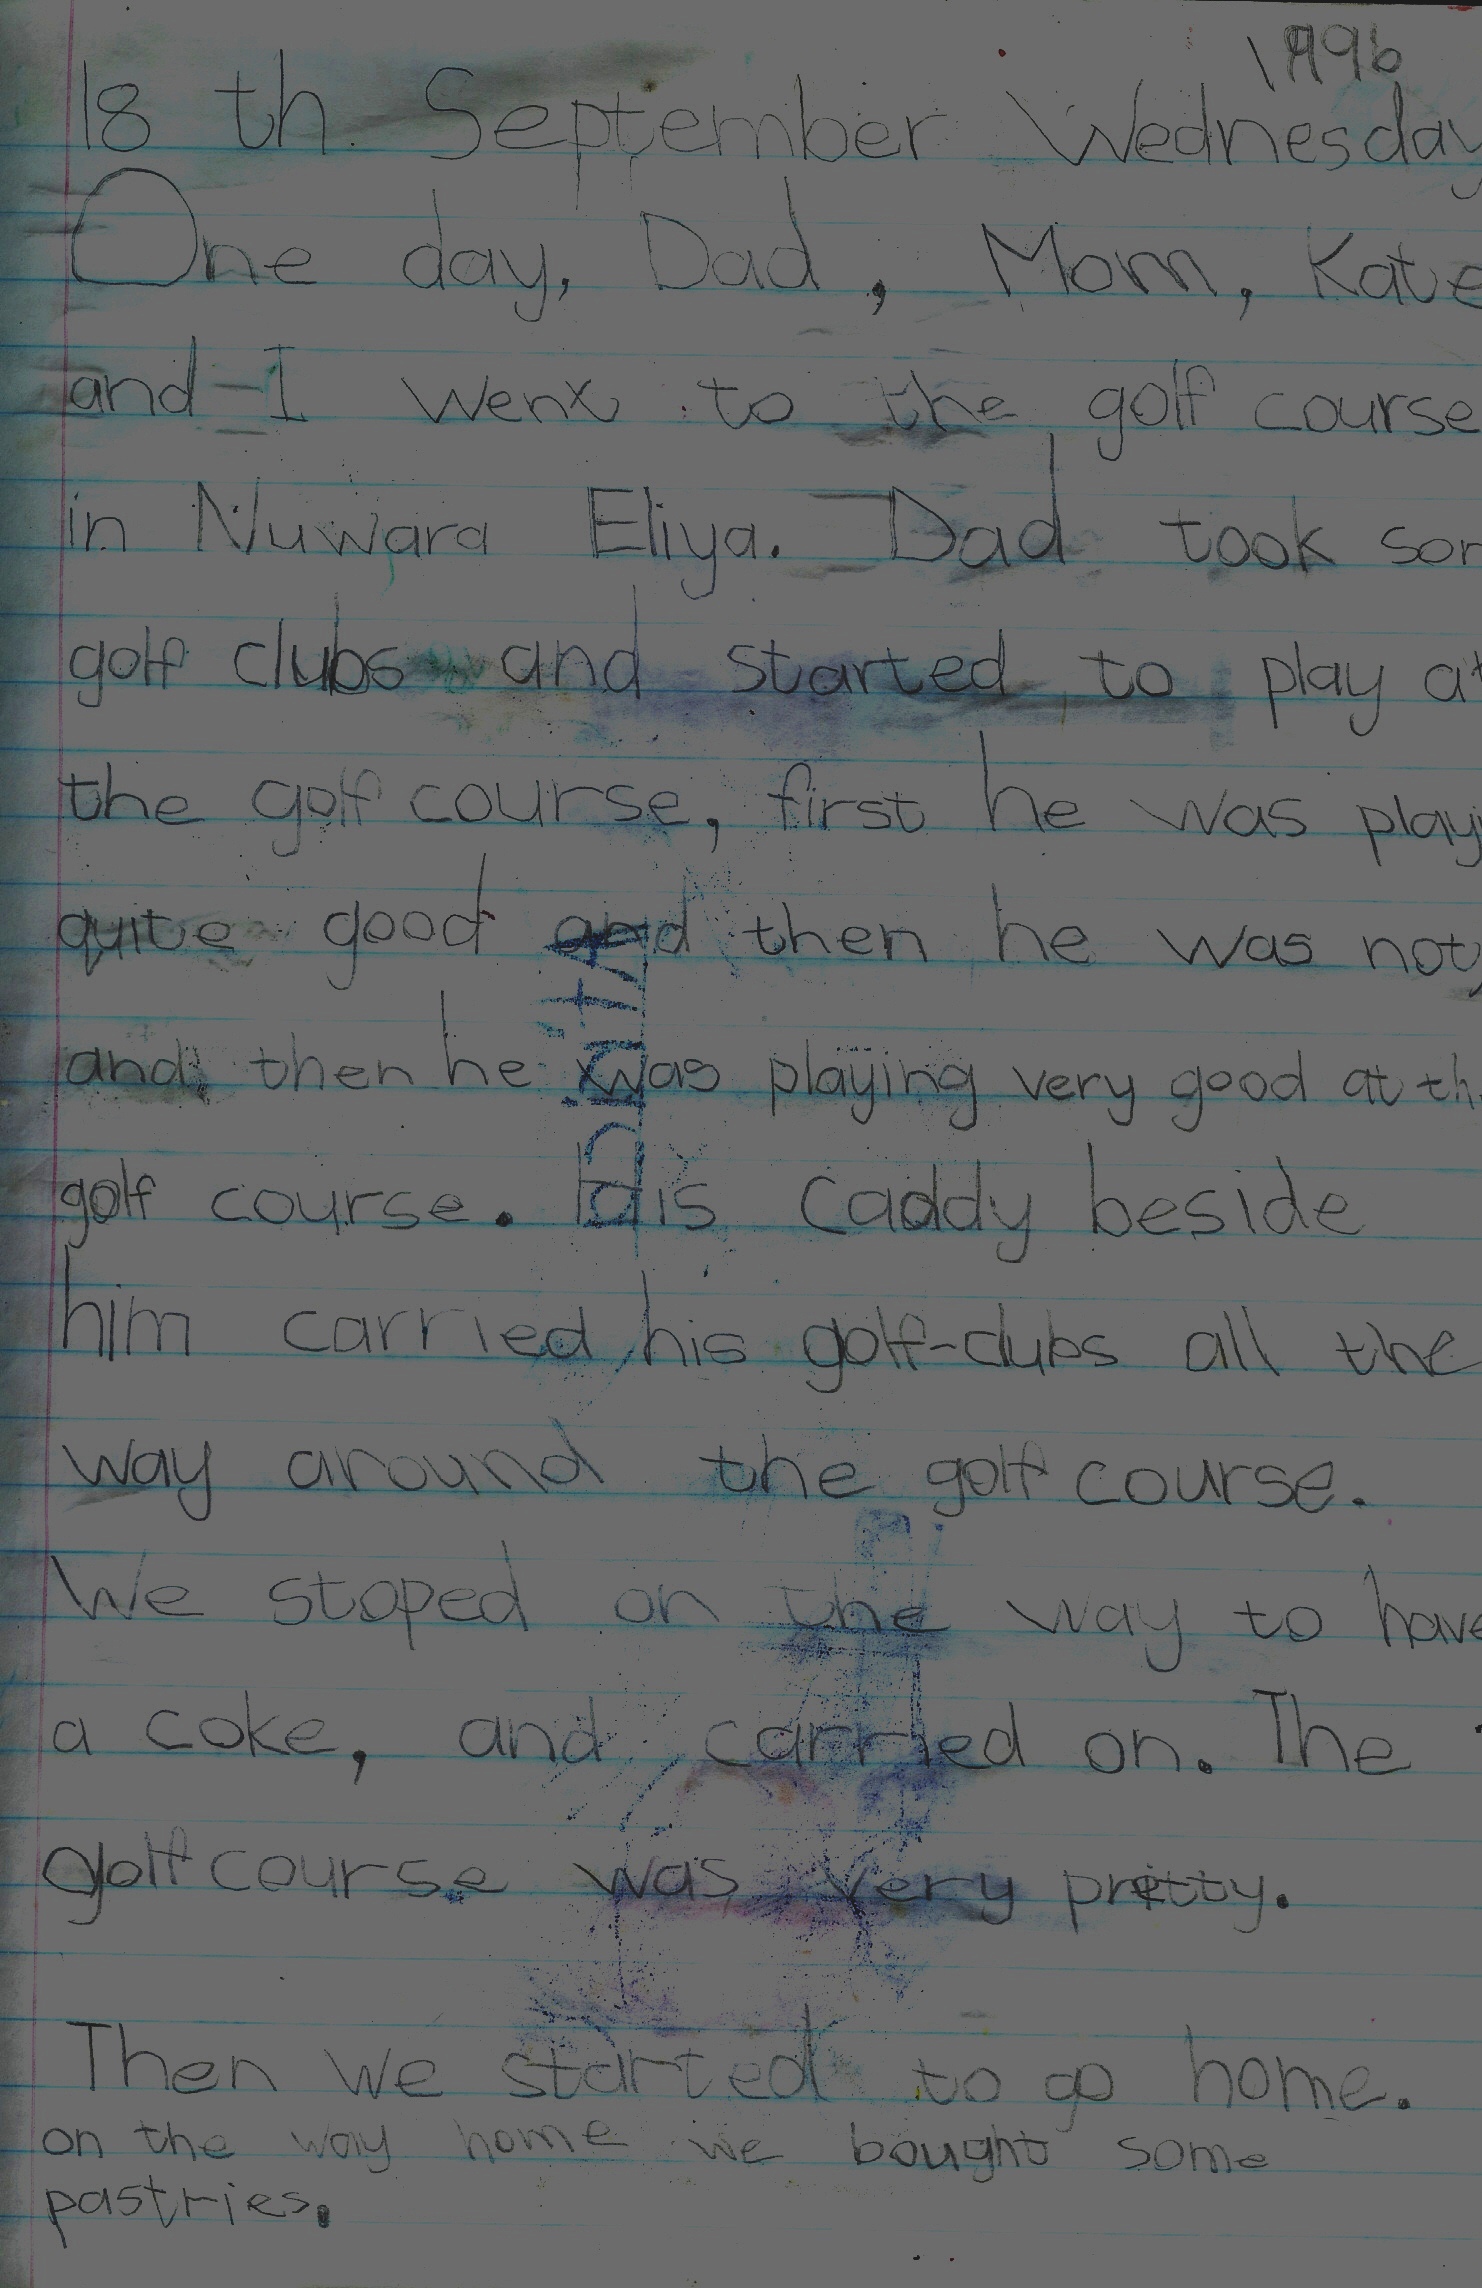 1996
18 th September Wednesday
One day, Dad, Mom, Kate
and I went to the golf course
in Nuwara Eliya. Dad took
golf clubs and started to play at
the golf course, first he was play
quite good and then he was not,
and then he was playing very good at th
golf course. His Caddy beside
him carried his golf-clubs all the
way around the golf course.
We stoped on the way to have
a coke, and carried on. The
golf course was very pretty.
Then we started to go home.
on the way home we bought some
pastries.